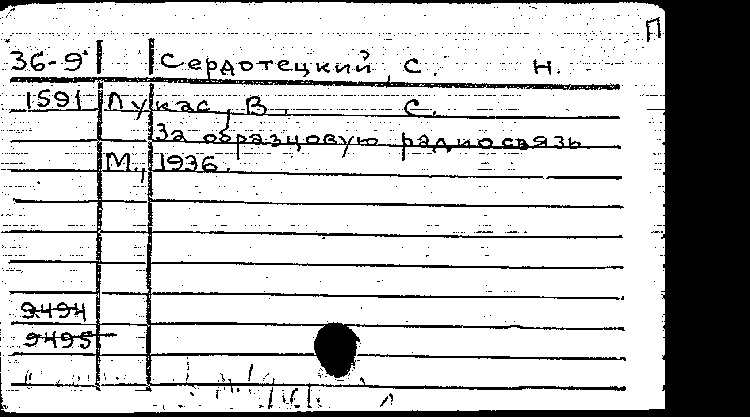 П
36-9 Сердотецкий, С. Н.
1591 Лукас, В. С.
За образцовую радиосвязь
М., 1936.
9494
9495